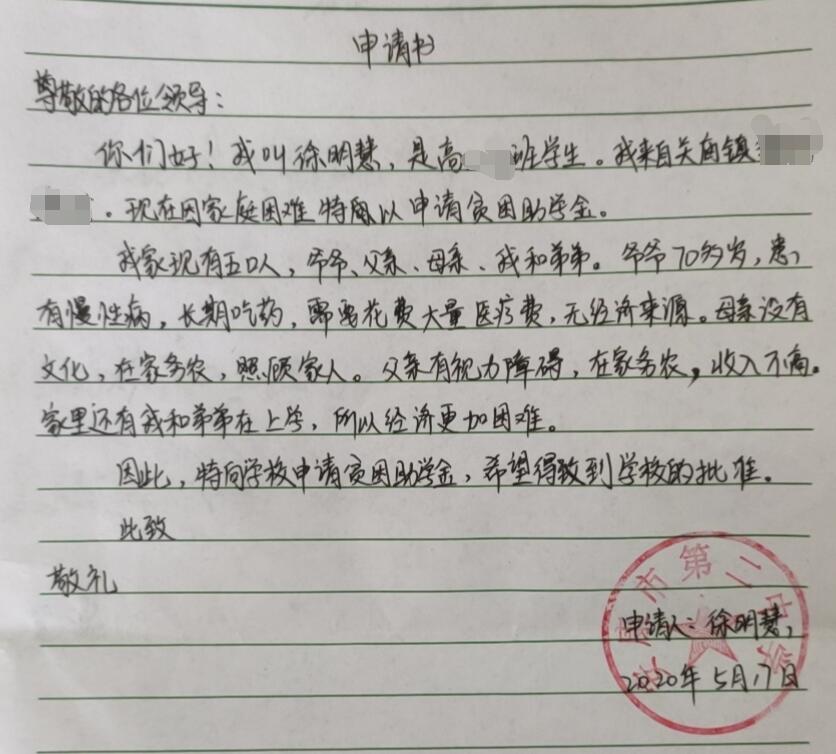 申请书
尊敬的各位领导：
你们好！我叫徐明慧，是高班学生。我来自关庙镇
。现在因家庭困难特所以申请贫困助学金。
我家现有五口人，爷爷、父亲、母亲、我和弟弟。爷爷70多岁，患
有慢性病，长期吃药，需要花费大量医疗费，无经济来源。母亲没有
文化，在家务农，照顾家人。父亲有视力障碍，在家务农，收入不高。
家里还有我和弟弟在上学，所以经济更加困难。
因此，特向学校申请贫困助学金，希望得致到学校的批准。
此致
敬礼
市第二中学
申请人：徐明慧
2020年5月17日